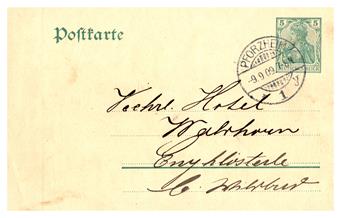 Postkarte
5 5
PFORZHEIM
-9.9.09.
1
Verehrl. Hotel
Waldhorn
Enzklösterle
b. Wildbad